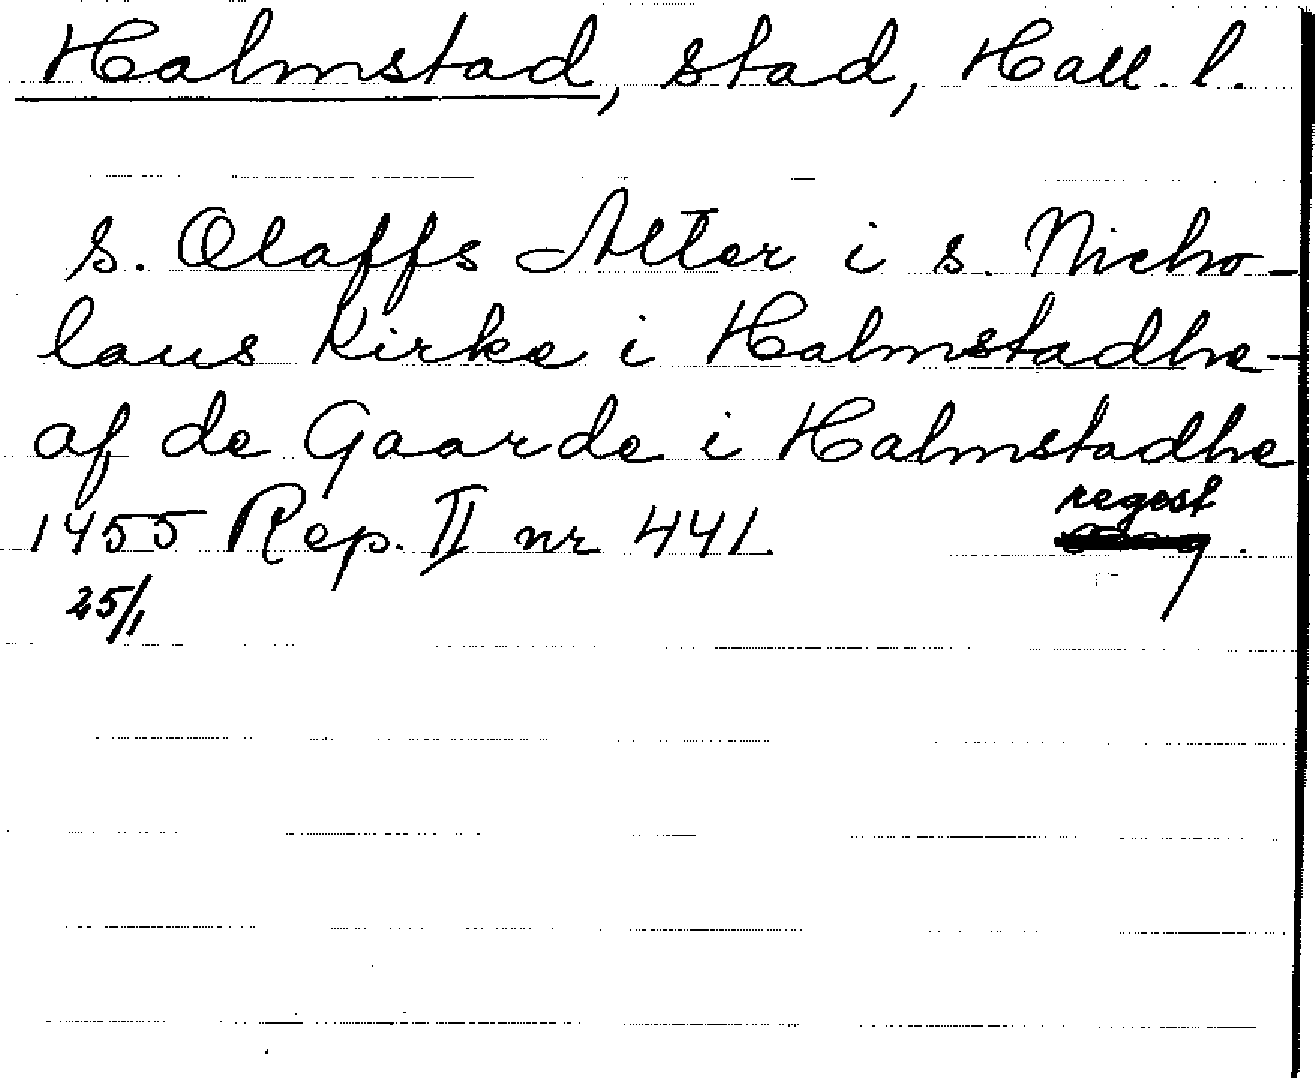 Halmstad, stad, Hall. l.
s. Olaffs Alter i s. Nicho-
laus Kirke i Halmstadhe-
af de Gaarde i Halmstadhe
regest
1455 Rep. II nr 441
25/1